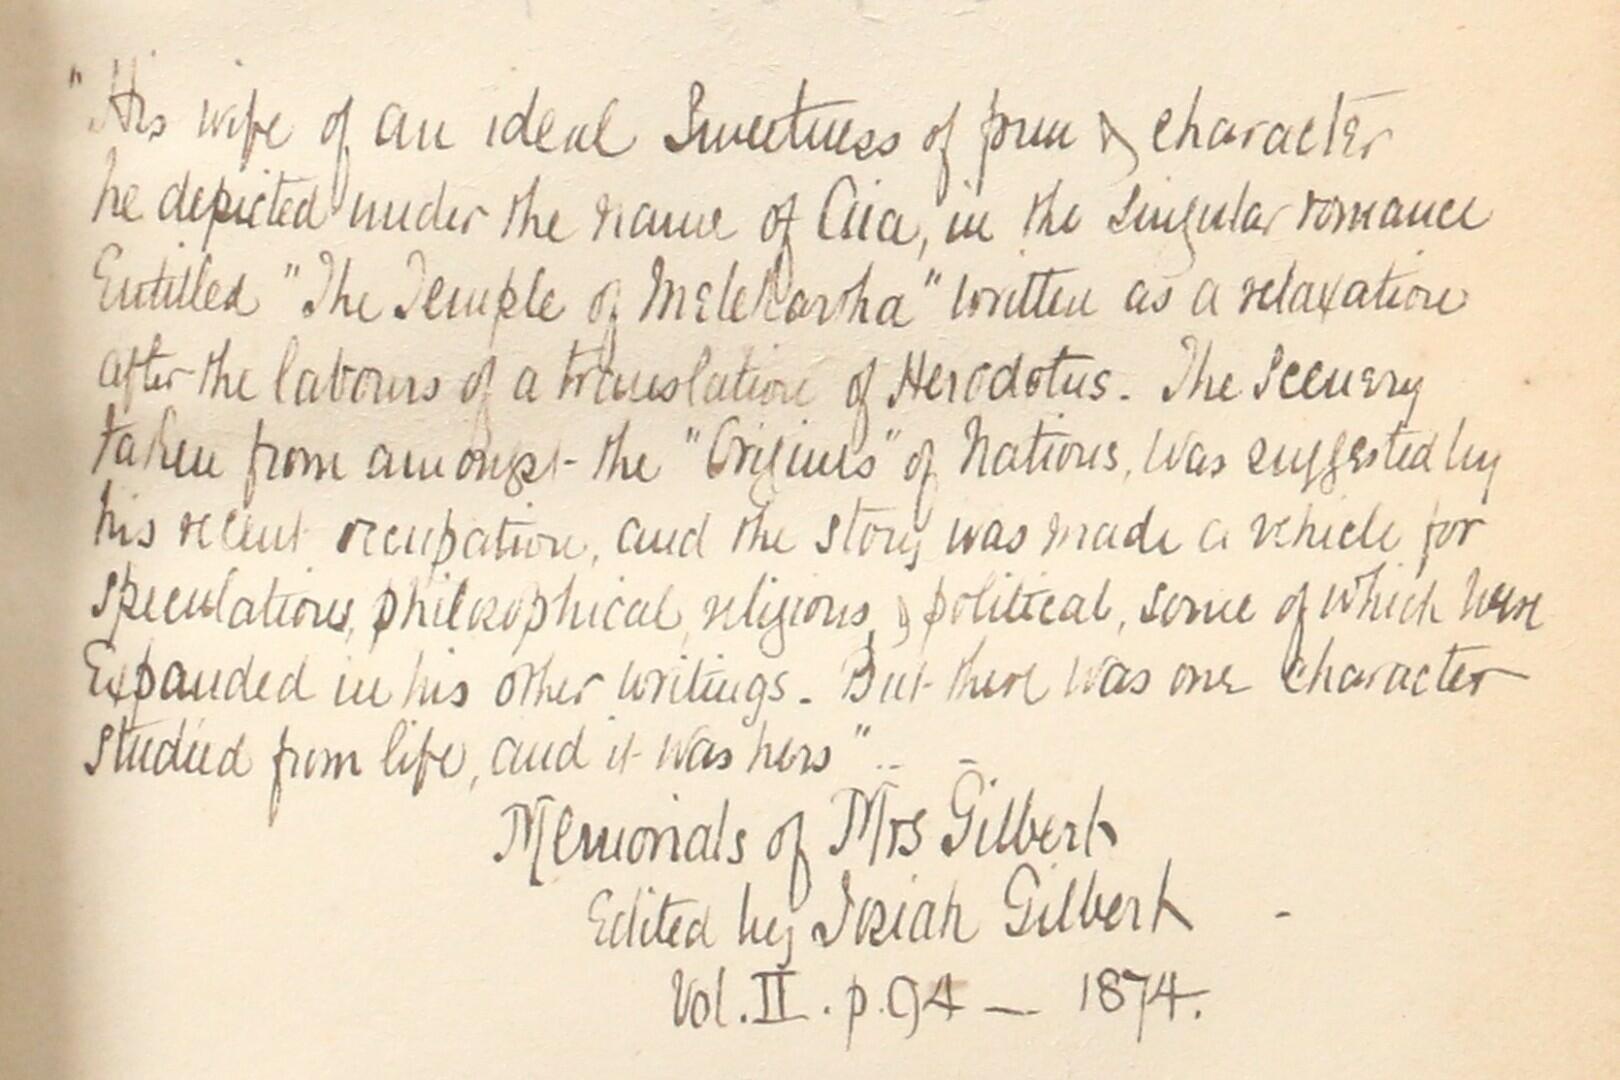 "His wife of an ideal Sweetness of form & character
he depicted under the name of Ciia, in the singular romance
Entitled "The Temple of Melekartha" written as a relaxation
after the labours of a translation of Herodotus. The Scenery
taken from amongst the "Origines" of Nations, was suggested by
his recent occupation, and the story was made a vehicle for
speculations, philosophical, religious, & political, some of which were
Expanded in his other writings. But there was one character
studied from life, and it was hers"..
Memorials of Mrs Gilbert
Edited by Josiah Gilbert -
Vol. II. p. 94 — 1874.